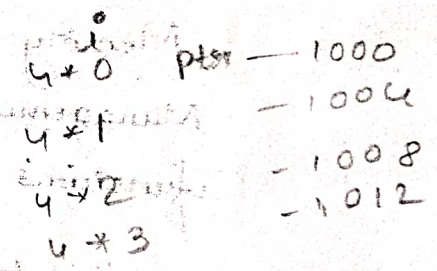 i
4 * 0 ptr — 1000
4 * 1 - 1004
4 * 2 - 1008
4 * 3 - 1012